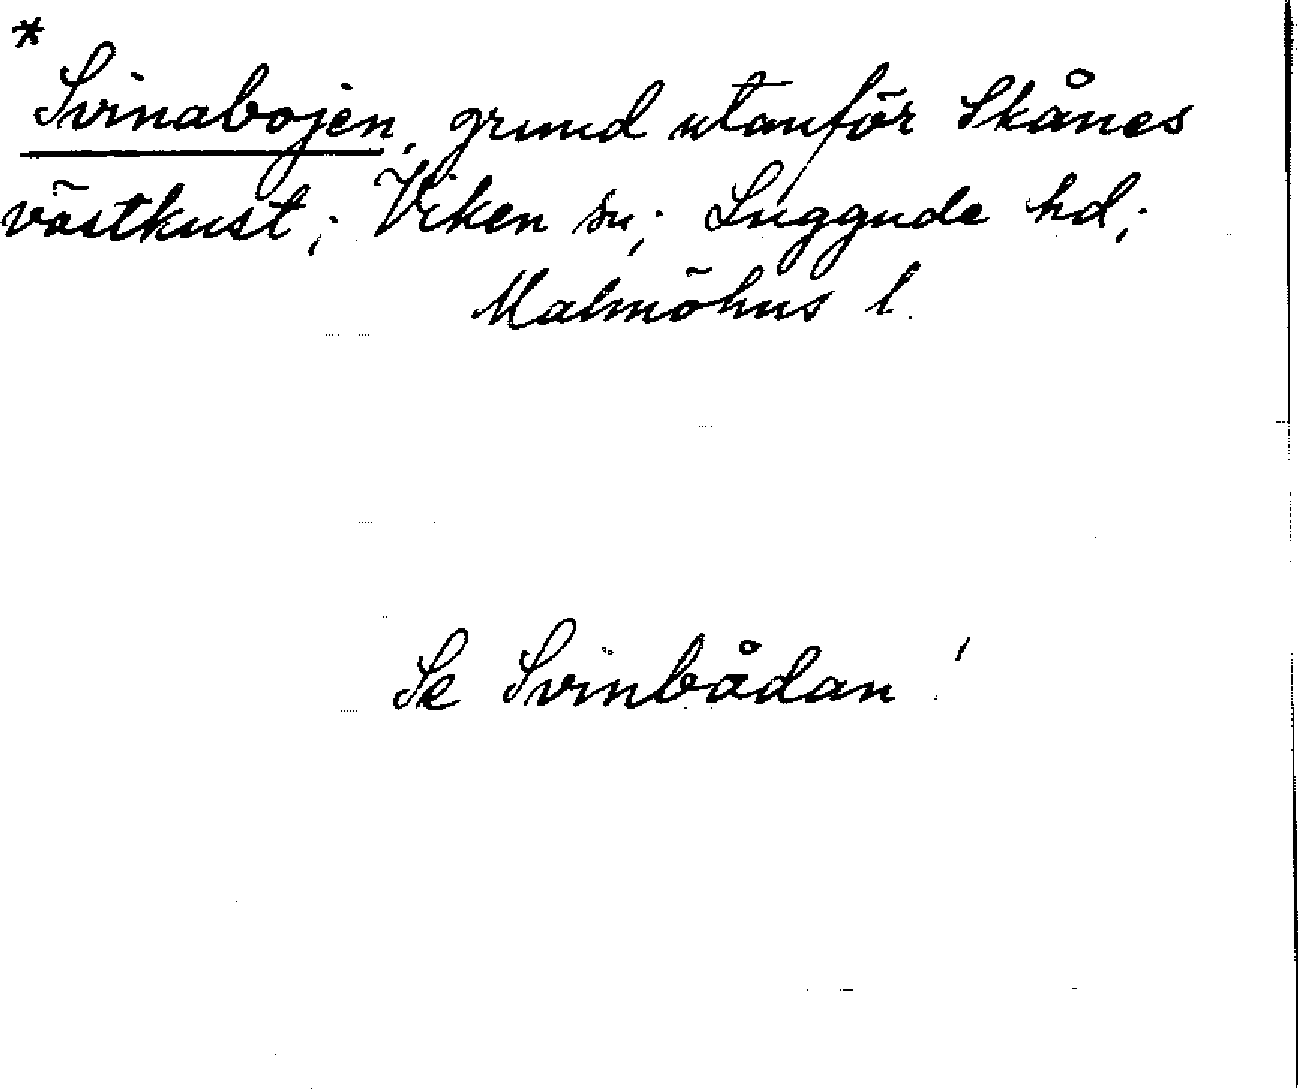 *
Svinabojen, grund utanför Skånes
västkust; Viken sn; Luggude hd;
Malmöhus l.
Se Svinbådan!